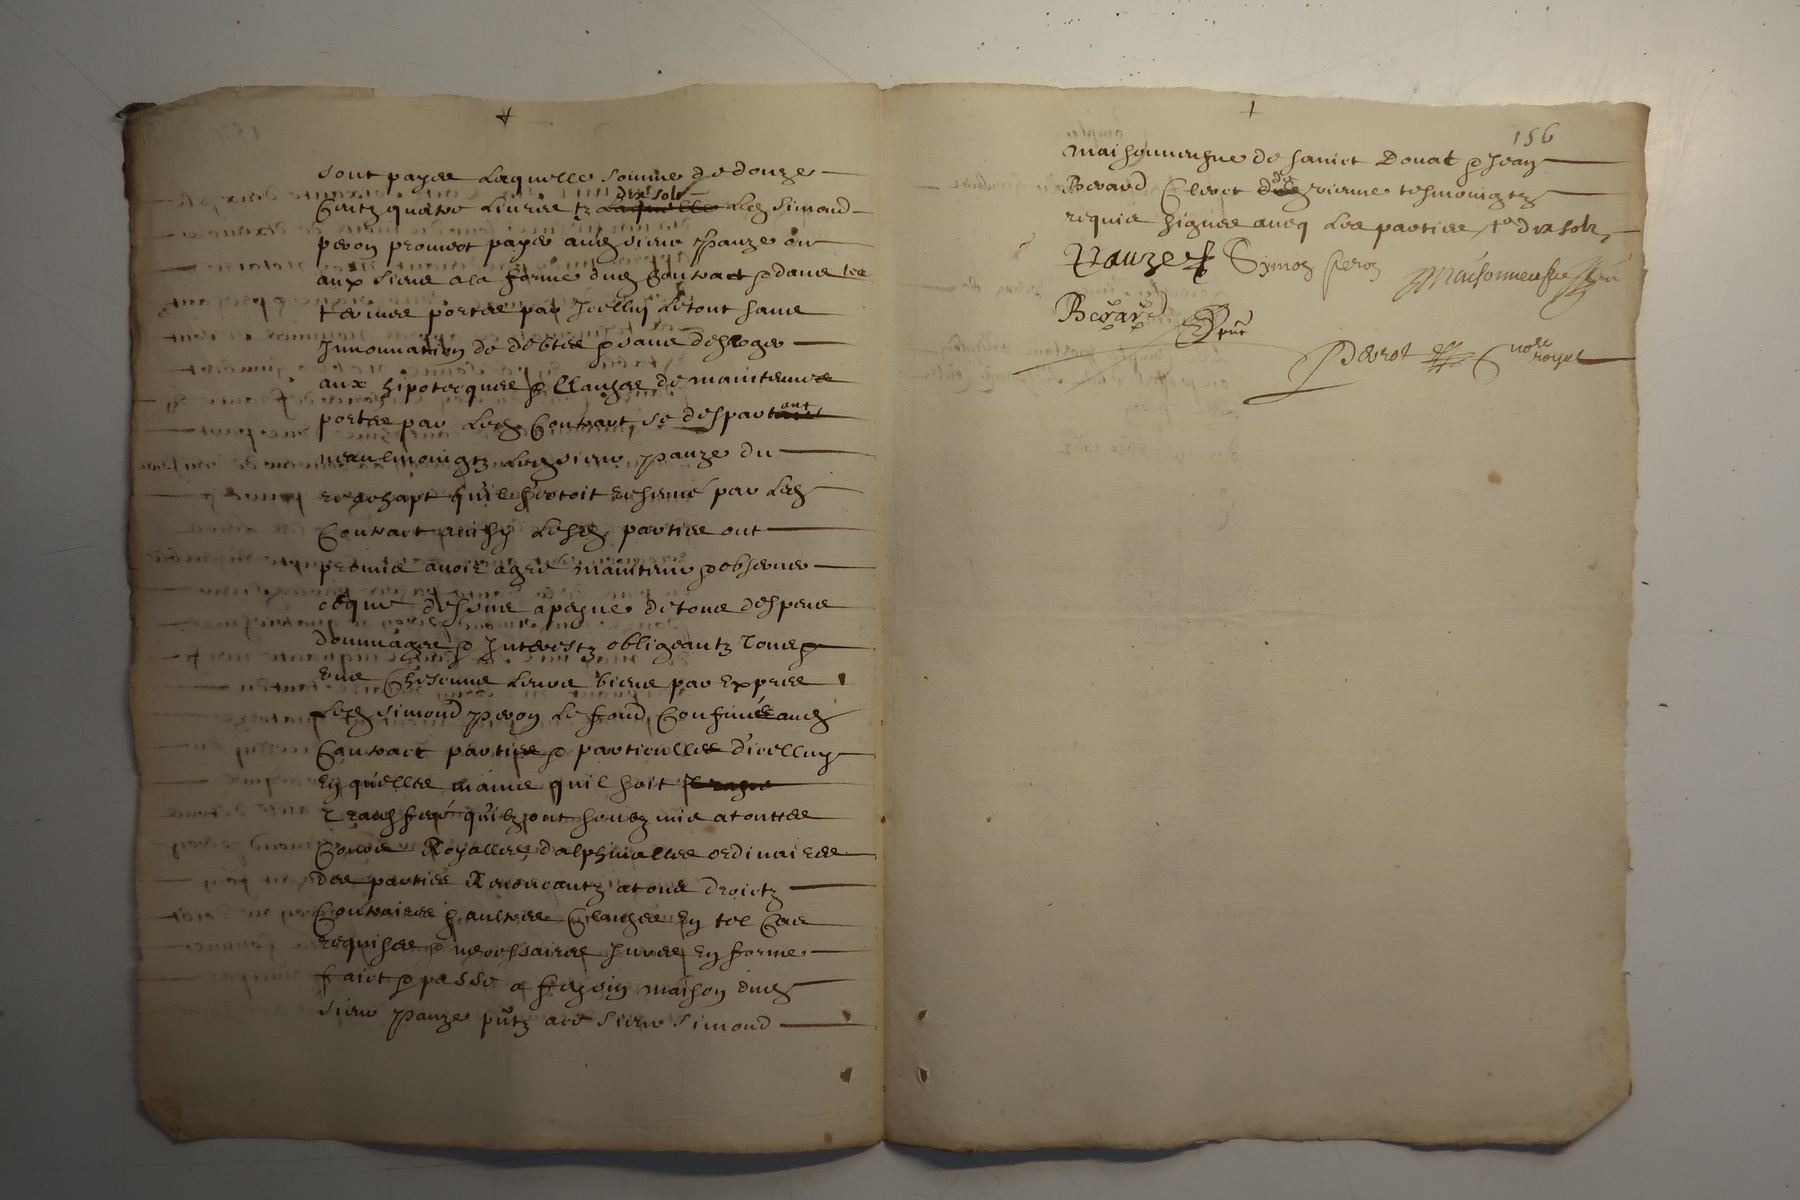 sont payee Laquelle somme de douze
Centz quatre Livres tz dix solz Led Simond
peron promect payer aud sieur panze ou
aux siens a la forme dud Contract & dans les
termes portes par Icelluy Le tout sans
Innouation de debtes & sans desroger
aux hipotecques & Clauses de maintenue
portee par Led Contract, se despartant
neaulmoingtz Led sieur panze du
rachapt qu'il s'estoit reserué par Led
Contract ainsy Lesd parties ont
promis auoir agreé maintenir & obseruer
ce que dessus a peyne de tous despens
dommages & Interestz obligeantz
Leurs biens par expres
Led Simond peron Le fond Confiné aud
Contract parties & particulles d'icelluy
En quelles mains qu'il soit
transferé qu'ilz ont soubzmis a touttes
Cours Royalles dalphinalles ordinaires
des parties Renonceantz a tous droictz
Contraires & aultres Clauses En tel Cas
requises & necessaires Jurés En forme
faict & passé a maison dud
sieur panze pntz sieur Simond
156
maisonneufue de sainct Donat & Jean
Berard Clerc de vienne tesmoingtz
requis Signes aueq Les parties, dix solz,
Panze Symon peron Maisonneufue
Berard pnt
Perrot nore royal